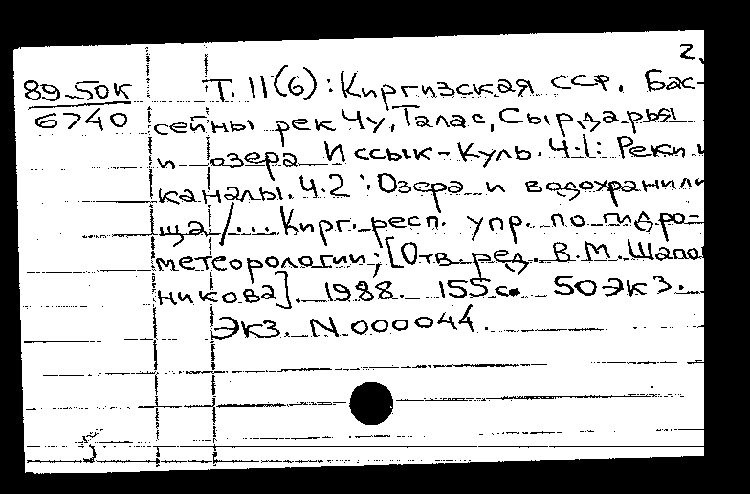 2.
89-50к
6740
Т. 11(6): Киргизская ССР. Бас-
сейны рек Чу, Талас, Сырдарья
и озера Иссык-Куль. Ч.1: Реки и
каналы. Ч.2: Озера и водохранили
ща /... Кирг. респ. упр. по гидро-
метеорологии; [Отв. ред. В.М. Шапо
никова]. 1988. 155 с. 50 экз.
Экз. N 000044.